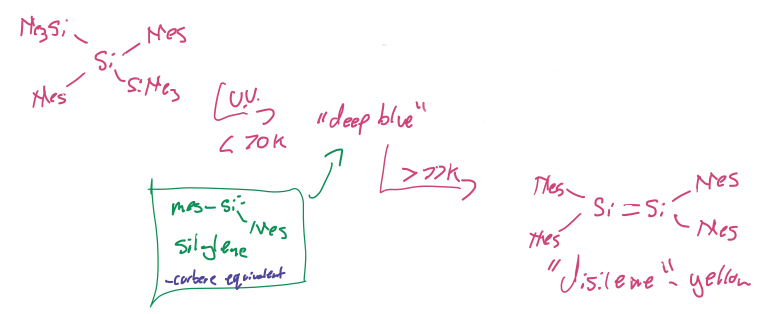 Me₃Si Mes
Si
Mes SiMe₃
U.V.
< 70K
"deep blue"
> 77K
mes-Si:
Mes
Silylene
-carbene equivalent
Mes Mes
Si=Si
Mes Mes
"disilene" - yellow